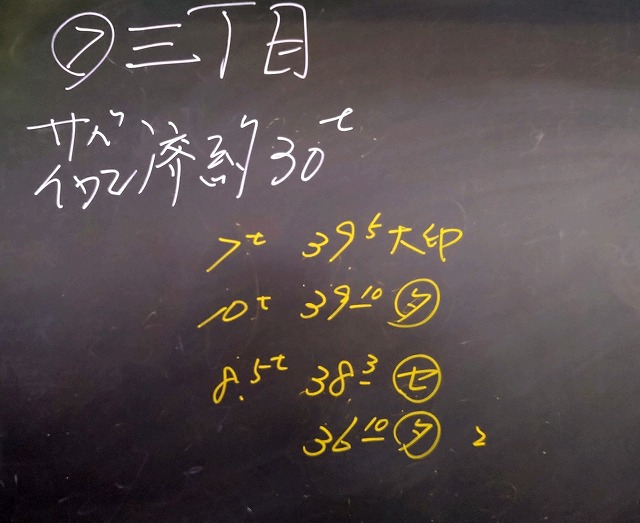 ㋐三丁目
サバ
イワシ済約30t
7t 39 5 大印
10t 39-10 ㋟
8.5t 38-3 ㊉
36-10 ㋟ 2